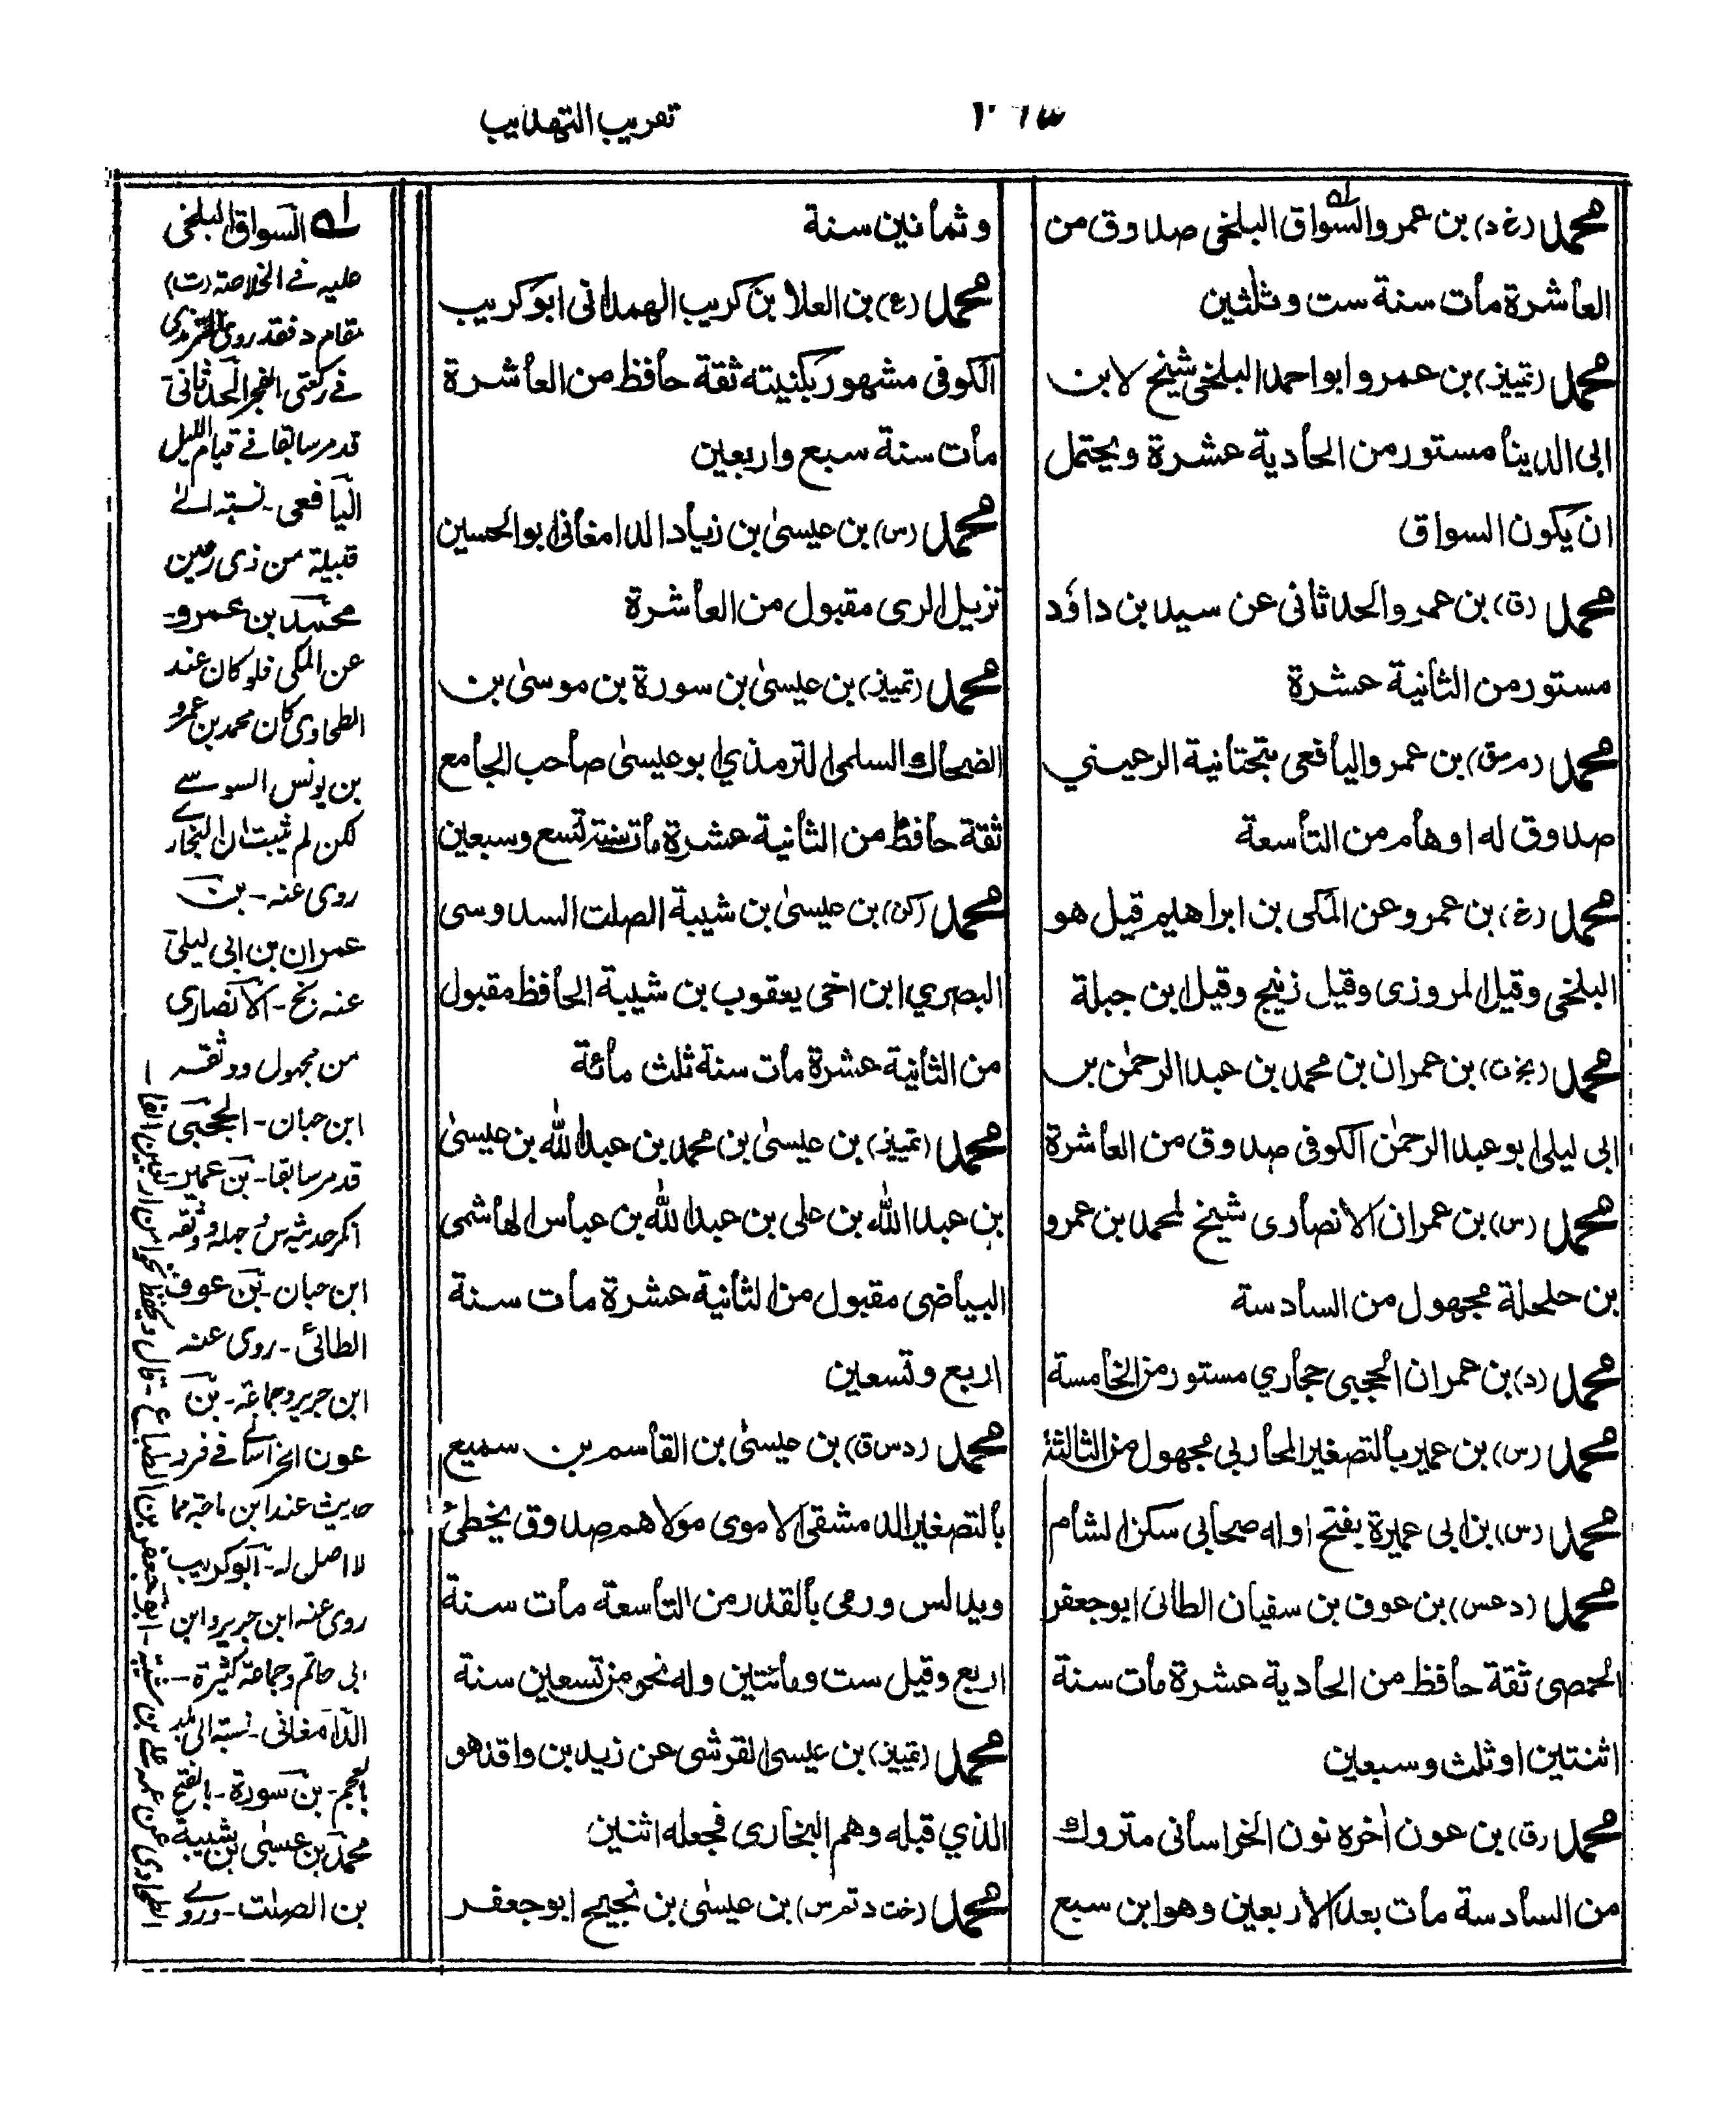 تقريب التهذيب
محمد (خ د) بن عمرو السواق البلخي صدوق من
العاشرة مات سنة ست وثلثين
محمد (تمييز) بن عمرو ابو احمد البلخي شيخ لابن
ابى الدينا مستور من الحادية عشرة ويحتمل
ان يكون السواق
محمد (ق) بن عمرو الحدثانى عن سيد بن داود
مستور من الثانية عشرة
محمد (م س ق) بن عمرو اليافعى بتحتانية الرعيني
صدوق له اوهام من التاسعة
محمد (خ) بن عمرو عن المكى بن ابراهيم قيل هو
البلخى وقيل المروزى وقيل زنيج وقيل ابن جبلة
محمد (بخ ت) بن عمران بن محمد بن عبد الرحمٰن بن
ابى ليلى ابو عبد الرحمٰن الكوفى صدوق من العاشرة
محمد (س) بن عمران الانصارى شيخ لمحمد بن عمرو
بن حلحلة مجهول من السادسة
محمد (د) بن عمران الحجبى حجازي مستور من الخامسة
محمد (س) بن عمير بالتصغير المحاربي مجهول من الثالثة
محمد (س) بن ابى عميرة بفتح اوله صحابى سكن الشام
محمد (د عس) بن عوف بن سفيان الطائى ابو جعفر
الحمصى ثقة حافظ من الحادية عشرة مات سنة
اثنتين او ثلث وسبعين
محمد (ق) بن عون اٰخره نون الخراسانى متروك
من السادسة مات بعد الاربعين وهو ابن سبع
وثمانين سنة
محمد (ع) بن العلا بن كريب الهمدانى ابو كريب
الكوفى مشهور بكنيته ثقة حافظ من العاشرة
مات سنة سبع واربعين
محمد (س) بن عيسىٰ بن زياد الدامغانى ابو الحسين
نزيل الرى مقبول من العاشرة
محمد (تمييز) بن عيسىٰ بن سورة بن موسىٰ بن
الضحاك السلمى الترمذي ابو عيسىٰ صاحب الجامع
ثقة حافظ من الثانية عشرة مات سنة تسع وسبعين
محمد (كن) بن عيسىٰ بن شيبة الصلت السدوسى
البصري ابن اخى يعقوب بن شيبة الحافظ مقبول
من الثانية عشرة مات سنة ثلث مائة
محمد (تمييز) بن عيسىٰ بن محمد بن عبد الله بن عيسىٰ
بن عبد الله بن على بن عبد الله بن عباس الهاشمى
البياضى مقبول من الثانية عشرة مات سنة
اربع وتسعين
محمد (د س ق) بن عيسىٰ بن القاسم بن سميع
بالتصغير الدمشقى الاموى مولاهم صدوق يخطئ
ويدلس ورمى بالقدر من التاسعة مات سنة
اربع وقيل ست ومائتين وله نحو من تسعين سنة
محمد (تمييز) بن عيسى القرشى عن زيد بن واقد هو
الذي قبله وهم البخارى فجعله اثنين
محمد (خت د تم س) بن عيسىٰ بن نجيح ابو جعفر
له السواق البلخى
عليه فے الخلاصة (ت)
مقام د فقد روى الترمذى
فے ركعتى الفجر الحدثانى
قد مر سابقا فے قيام الليل
اليافعى - نسبته الے
قبيلة من ذى رعين
محمد بن عمرو -
عن المكى فلو كان عند
الطحاوى كان محمد بن عمرو
بن يونس السوسے
لكن لم يثبت ان البخارے
روى عنه - بن
عمران بن ابى ليلى
عنه بخ - الانصارى
من مجهول ووثقه
ابن حبان - الحجبى
قد مر سابقا - بن عمير -
انكر حديثه س جبله ووثقه
ابن حبان - بن عوف
الطائى - روى عنه
ابن جرير وجماعة - بن
عون الخراسانے فے فرد
حديث عند ابن ماجة مما
لا اصل له - ابو كريب
روى عنه ابن جرير وابن
ابى حاتم وجماعة كثيرة -
الدامغانى - نسبته الى بلد
بالعجم - بن سورة - بالفتح
محمد بن عيسى بن شيبة
بن الصلت - وروے
الطحاوى عن محمد على بن شيبة - ابو جعفر بن الطباع - قال ويحفظ نحوا من اربعين الفا -